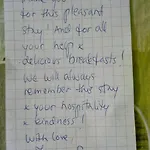 for this pleasant
stay! And for all
your help &
delicious breakfasts!
We will always
remember this stay
& your hospitality
& kindness!
With love